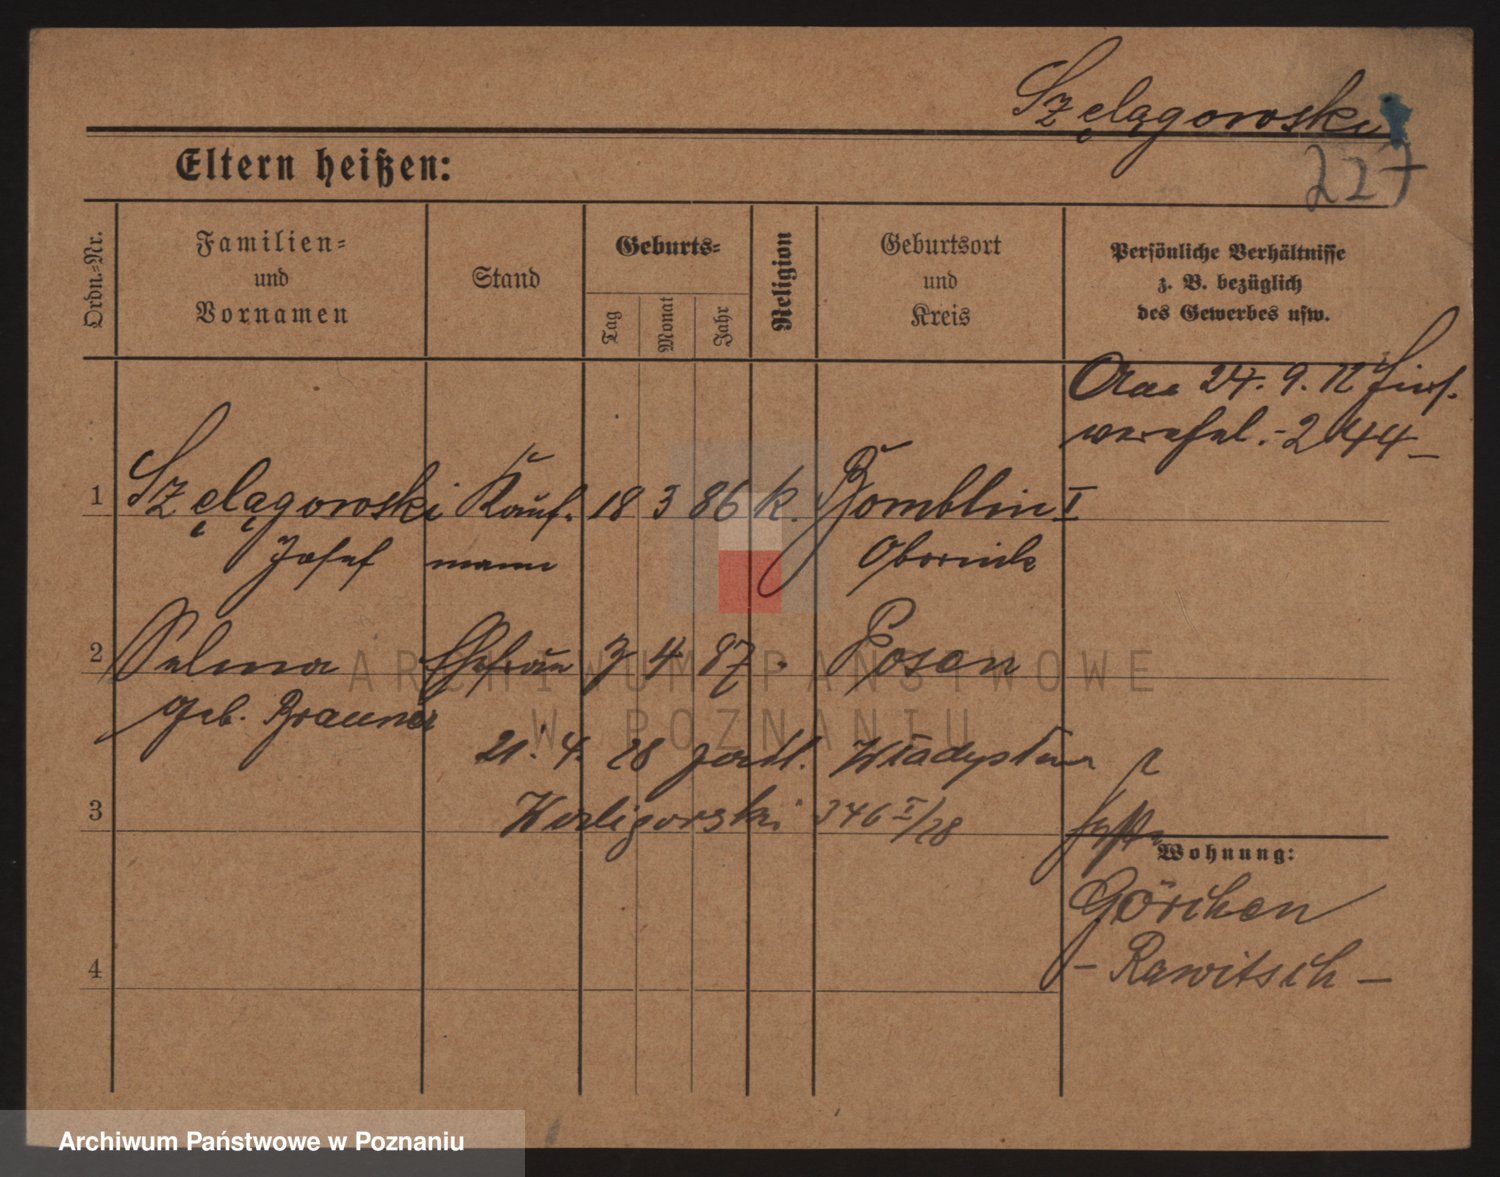 Szęlągowski
227
Eltern heißen:
Ordn.-Nr.
Familien-
und
Vornamen
Stand
Geburts-
Tag
Monat
Jahr
Religion
Geburtsort
und
Kreis
Persönliche Verhältnisse
z. B. bezüglich
des Gewerbes usw.
24. 9. 12
244
1 Szęlągowski Kauf- 18 3 86 k. Bomblin I
Josef mann Obornick
2 Selma Ehefrau 3 4 87 " Posen
geb. Brauner
21. 4. 28 Władysław
346 I/28
3
Wohnung:
Görchen
- Rawitsch -
4
ARCHIWUM PAŃSTWOWE
W POZNANIU
Archiwum Państwowe w Poznaniu